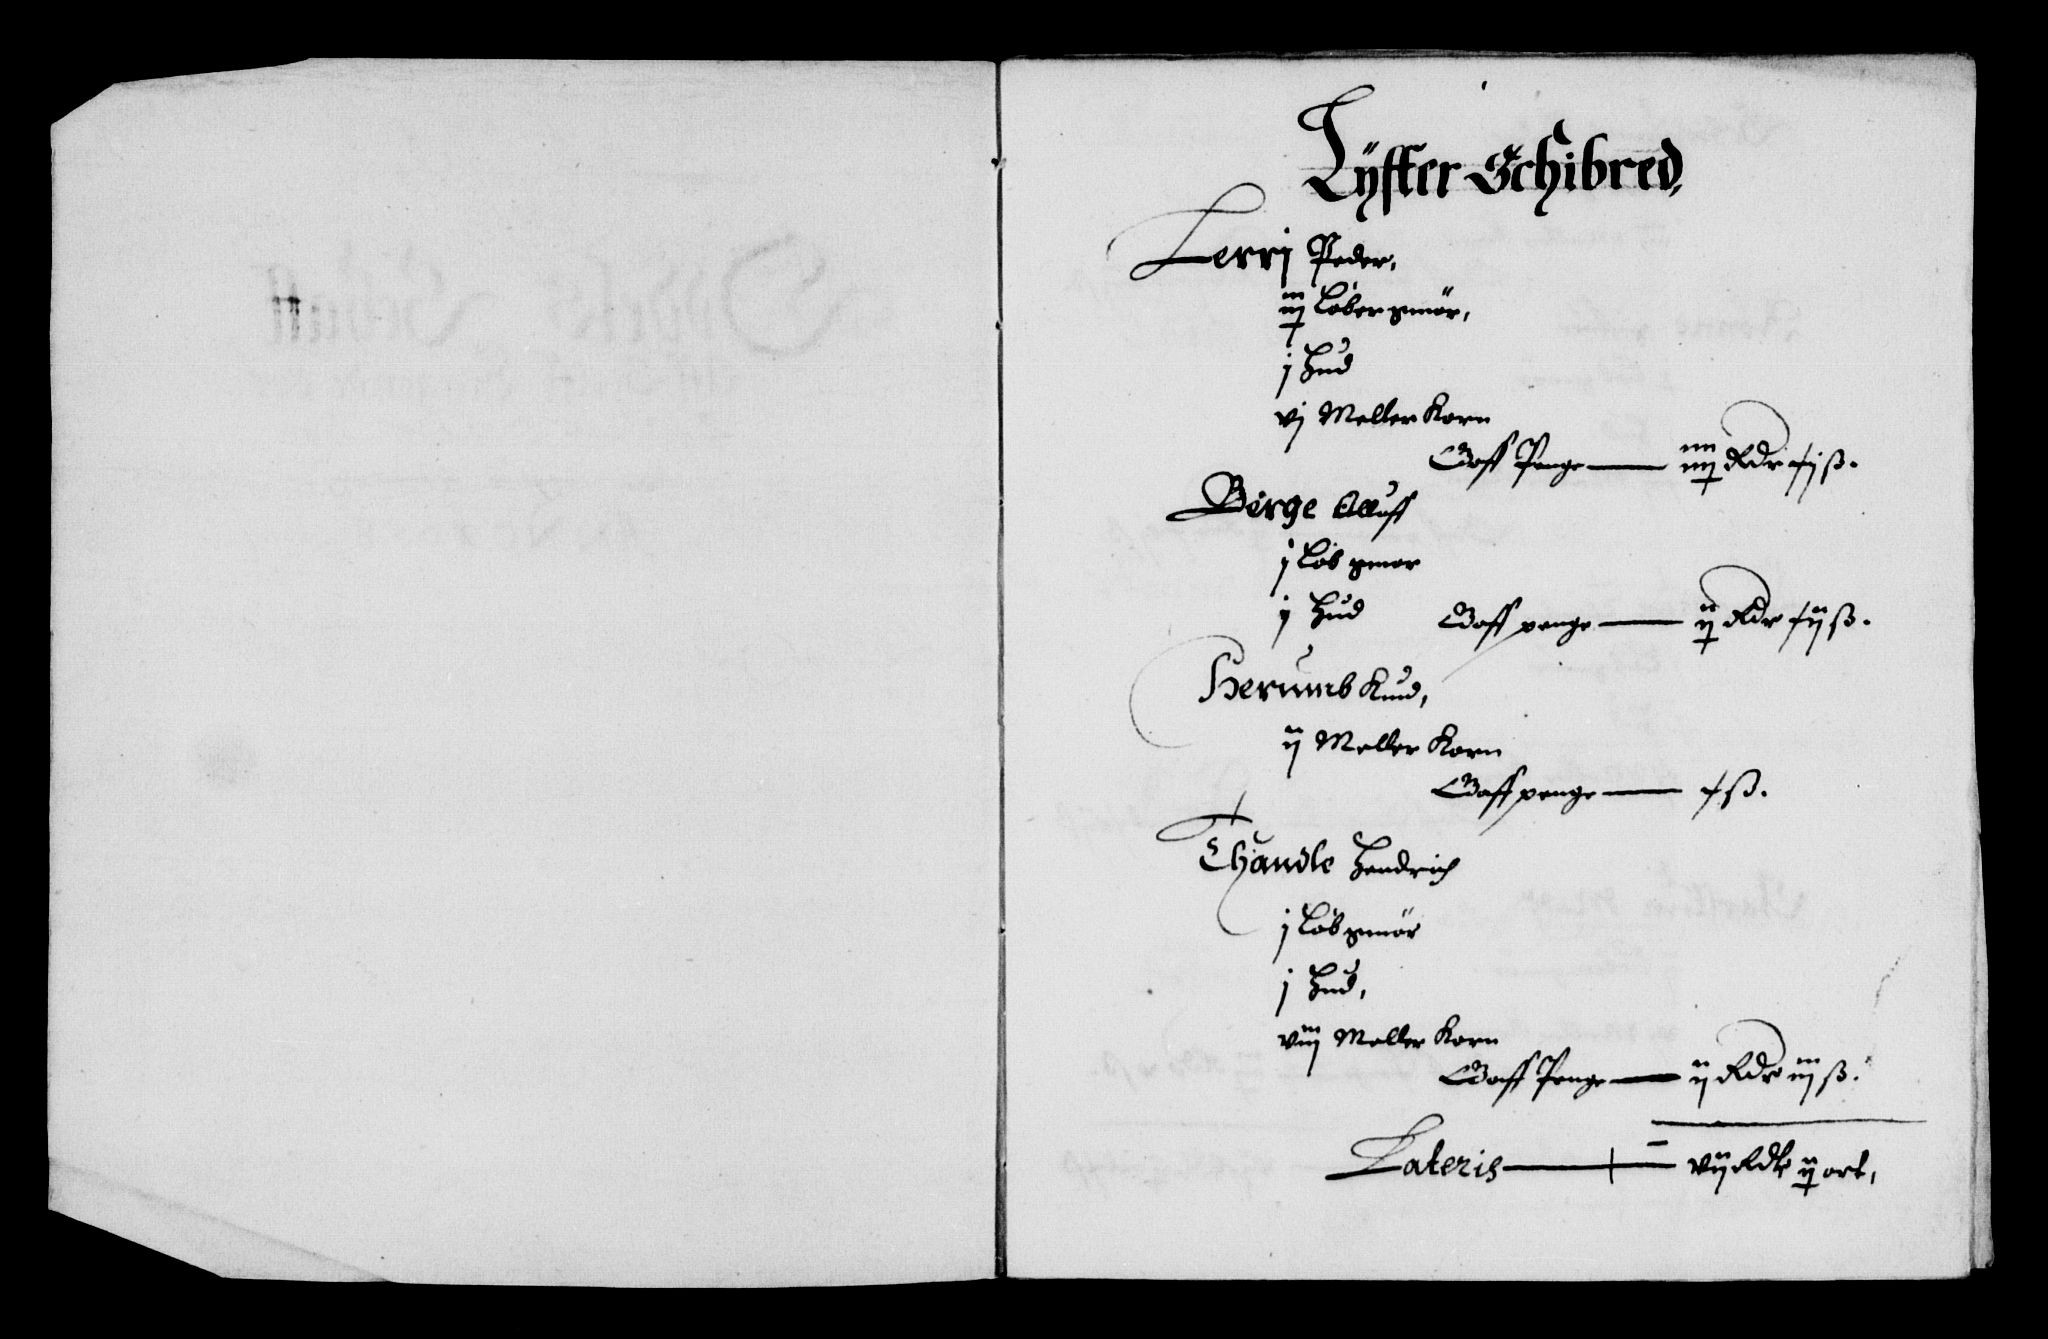 Lyster Schibred,
Lerrj Peder,
iiij Løber smør,
j Hud
vj Meller Korn
Gaff Penge — Rdr ß.
Berge Oluff
j Løb smør
j Hud Gaff penge — Rdr ß.
Herumb Knud,
ij Meller Korn
Gaff penge — ß.
Thandle Hendrich
j Løb smør
j Hud,
viij Meller Korn
Gaff Penge — ij Rdr iij ß.
Lateris — vij Rdr ort,